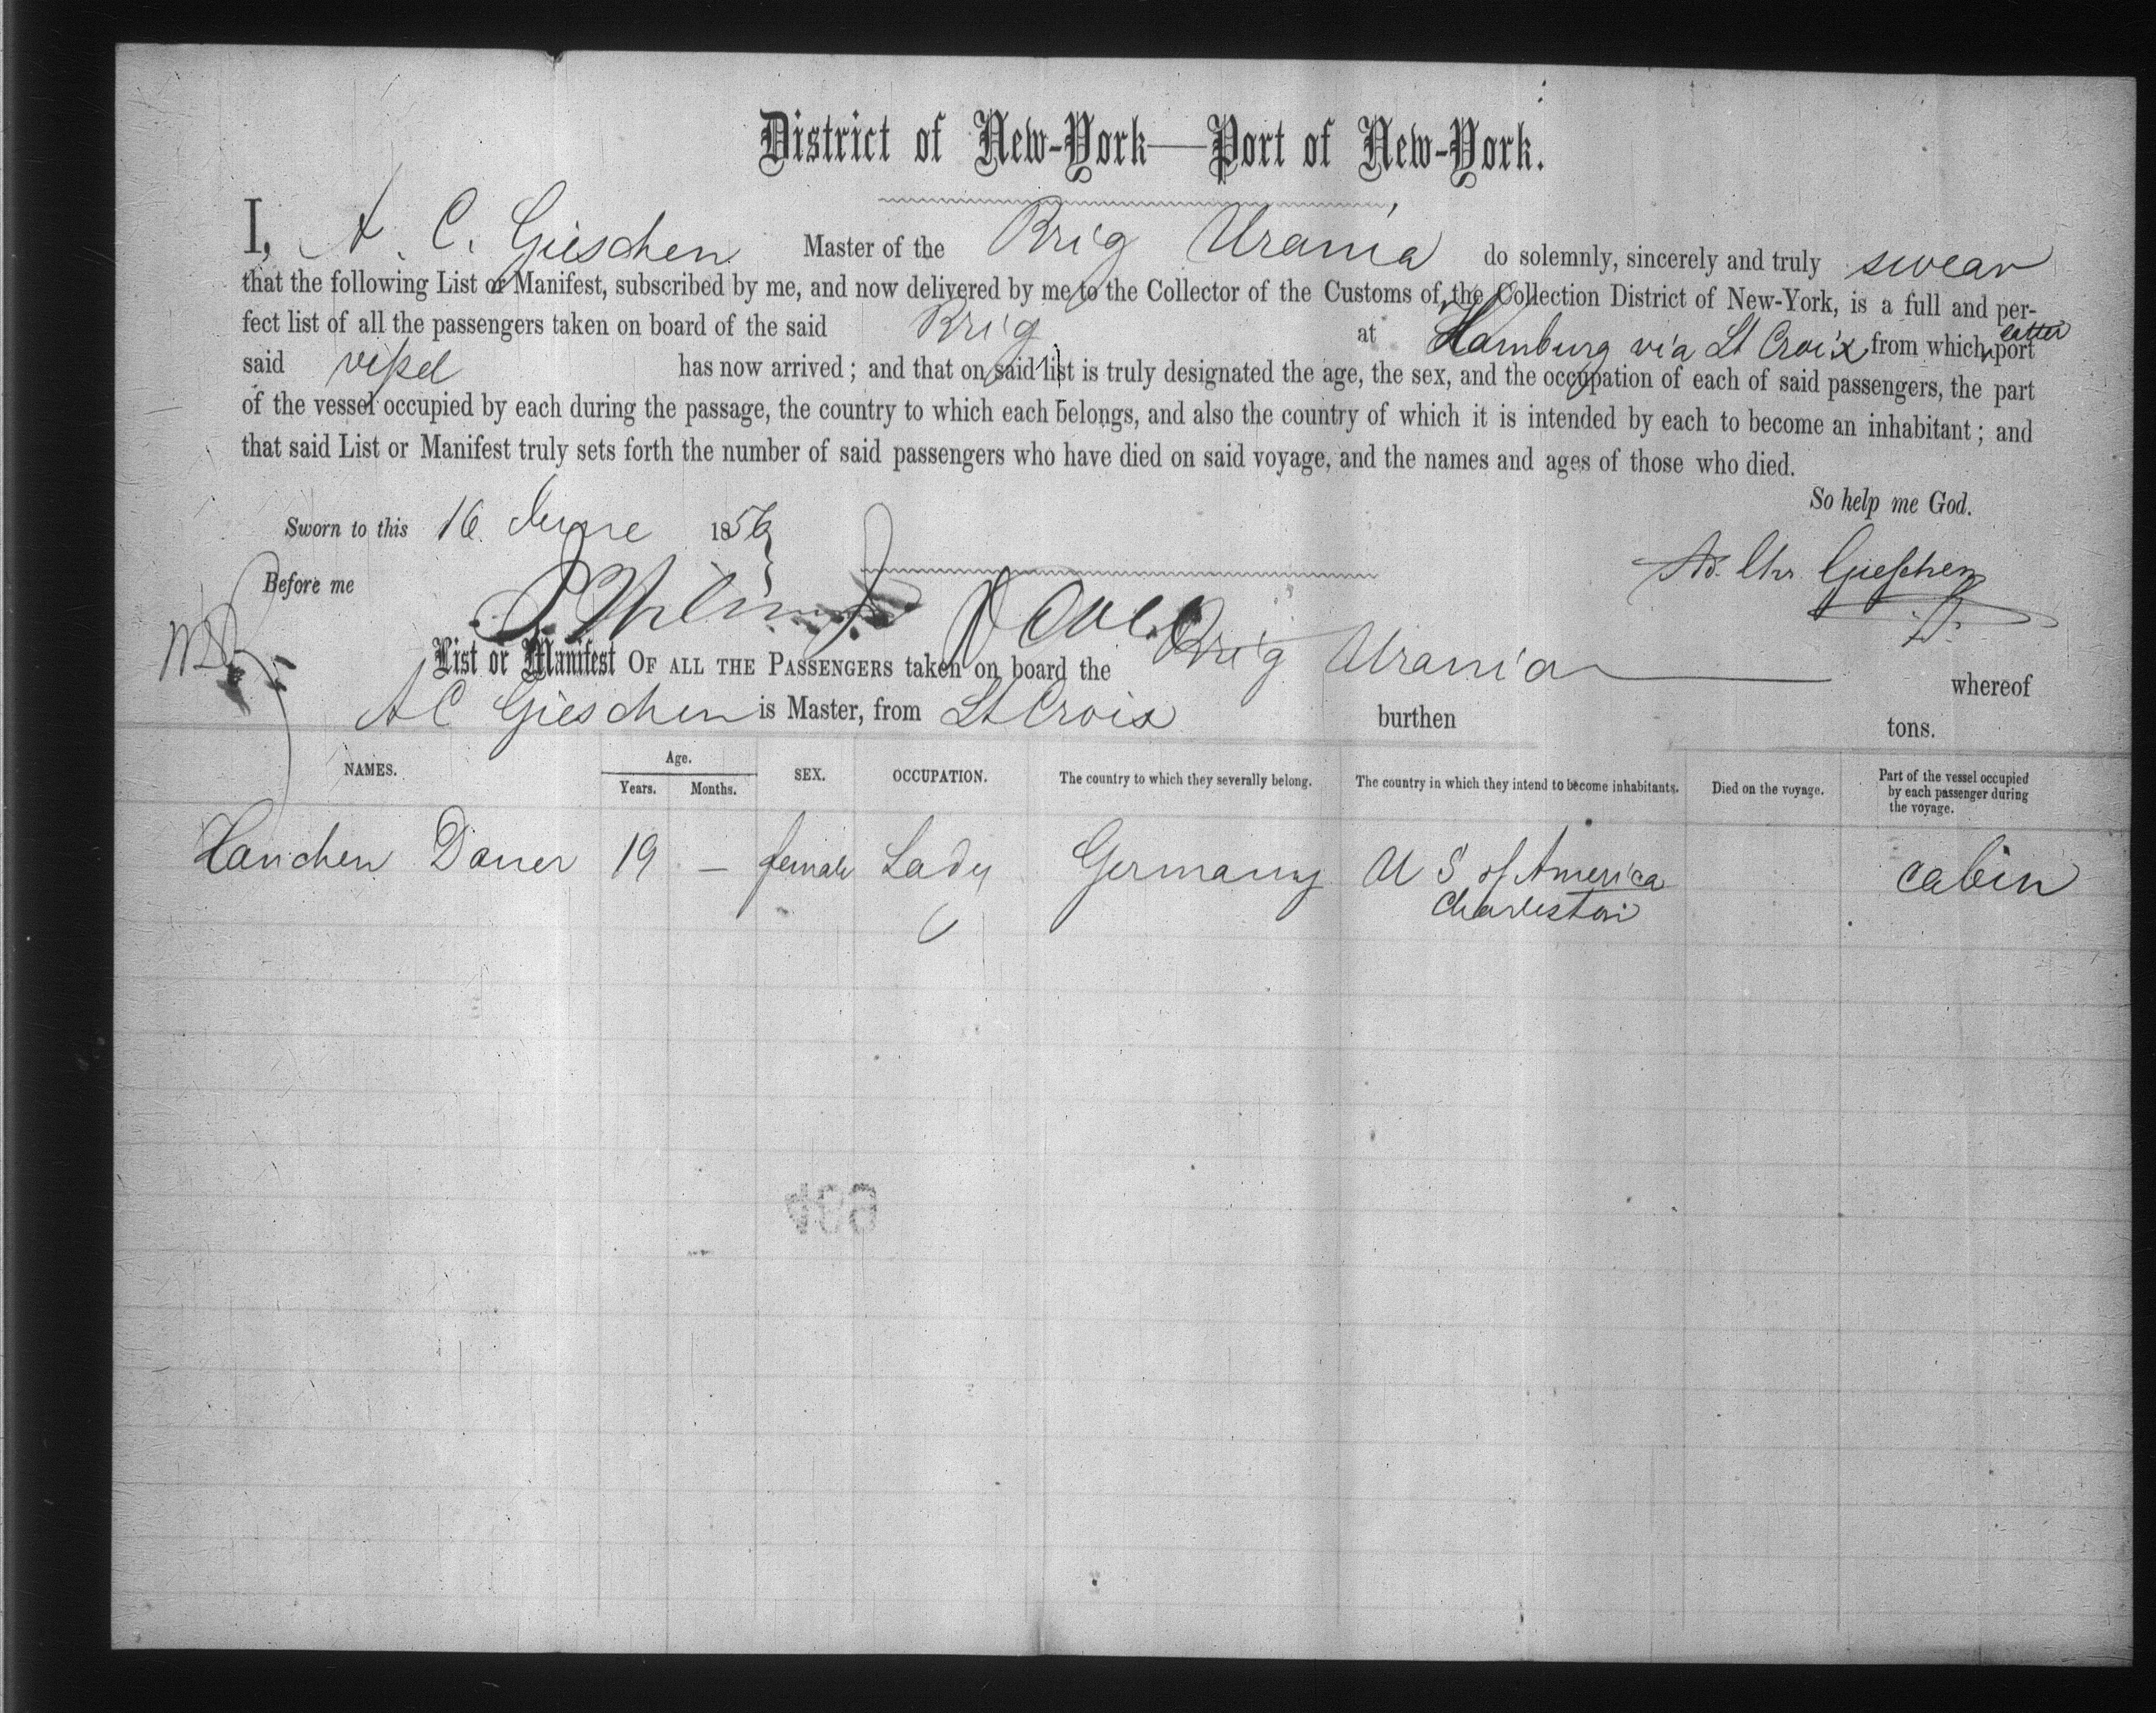 District of New-York—Port of New-York.
I, A. C. Gieschen Master of the Brig Urania do solemnly, sincerely and truly swear
that the following List or Manifest, subscribed by me, and now delivered by me to the Collector of the Customs of the Collection District of New-York, is a full and per-
fect list of all the passengers taken on board of the said Brig at Hamburg via St Croix from which latter port
said vessel has now arrived; and that on said list is truly designated the age, the sex, and the occupation of each of said passengers, the part
of the vessel occupied by each during the passage, the country to which each belongs, and also the country of which it is intended by each to become an inhabitant; and
that said List or Manifest truly sets forth the number of said passengers who have died on said voyage, and the names and ages of those who died.
So help me God.
Sworn to this 16. June 1856
Ad. Chr. Gieschen
Before me
List or Manifest OF ALL THE PASSENGERS taken on board the Brig Urania whereof
A C Gieschen is Master, from St Croix burthen tons.
NAMES. Age. Years. Months. SEX. OCCUPATION. The country to which they severally belong. The country in which they intend to become inhabitants. Died on the voyage. Part of the vessel occupied by each passenger during the voyage.
Hanchen Daner 19 — female Lady Germany U S of America cabin
Charleston
694